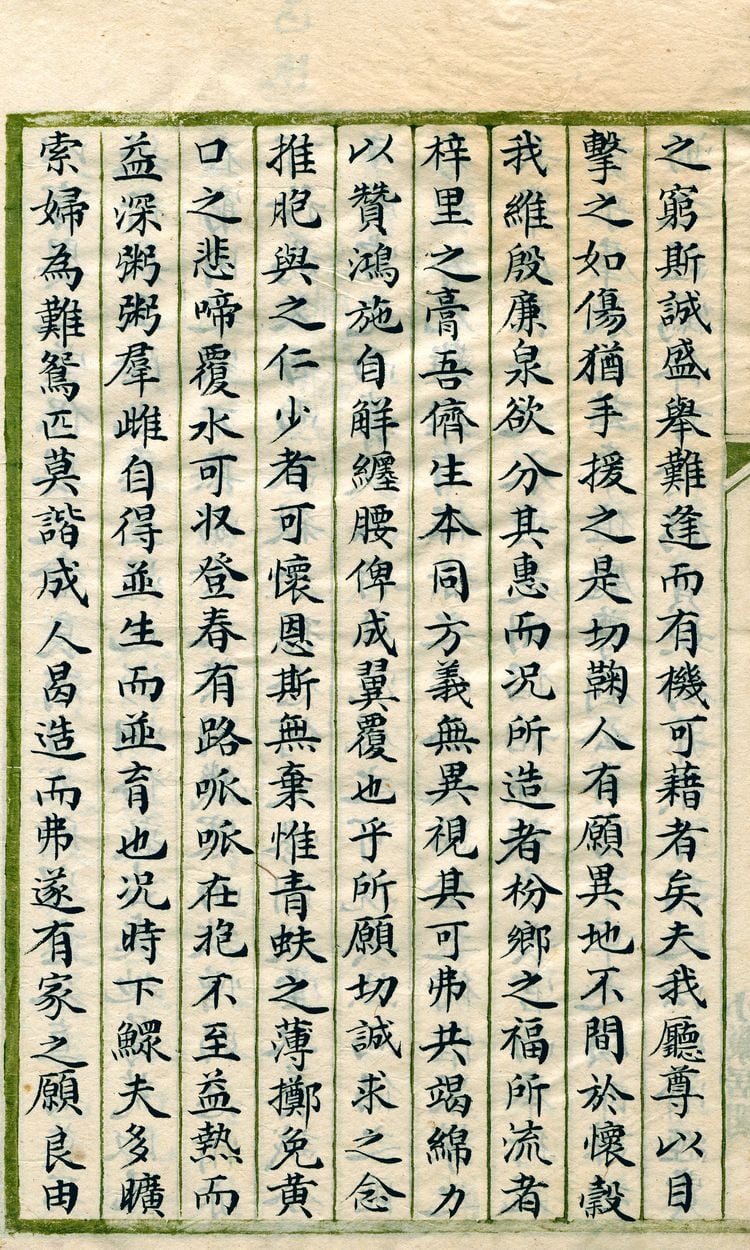 之窮斯誠盛舉難逢而有機可藉者矣夫我廳尊以目
擊之如傷猶手援之是切鞠人有願異地不間於懷縠
我維殷廉泉欲分其惠而况所造者枌鄉之福所流者
梓里之膏吾儕生本同方義無異視其可弗共竭綿力
以贊鴻施自解纏腰俾成翼覆也乎所願切誠求之念
推胞與之仁少者可懷恩斯無棄惟青蚨之薄擲免黄
口之悲啼覆水可収登春有路呱呱在抱不至益熱而
益深粥粥羣雌自得並生而並育也况時下鰥夫多曠
索婦為難鴛匹莫諧成人曷造而弗遂有家之願良由